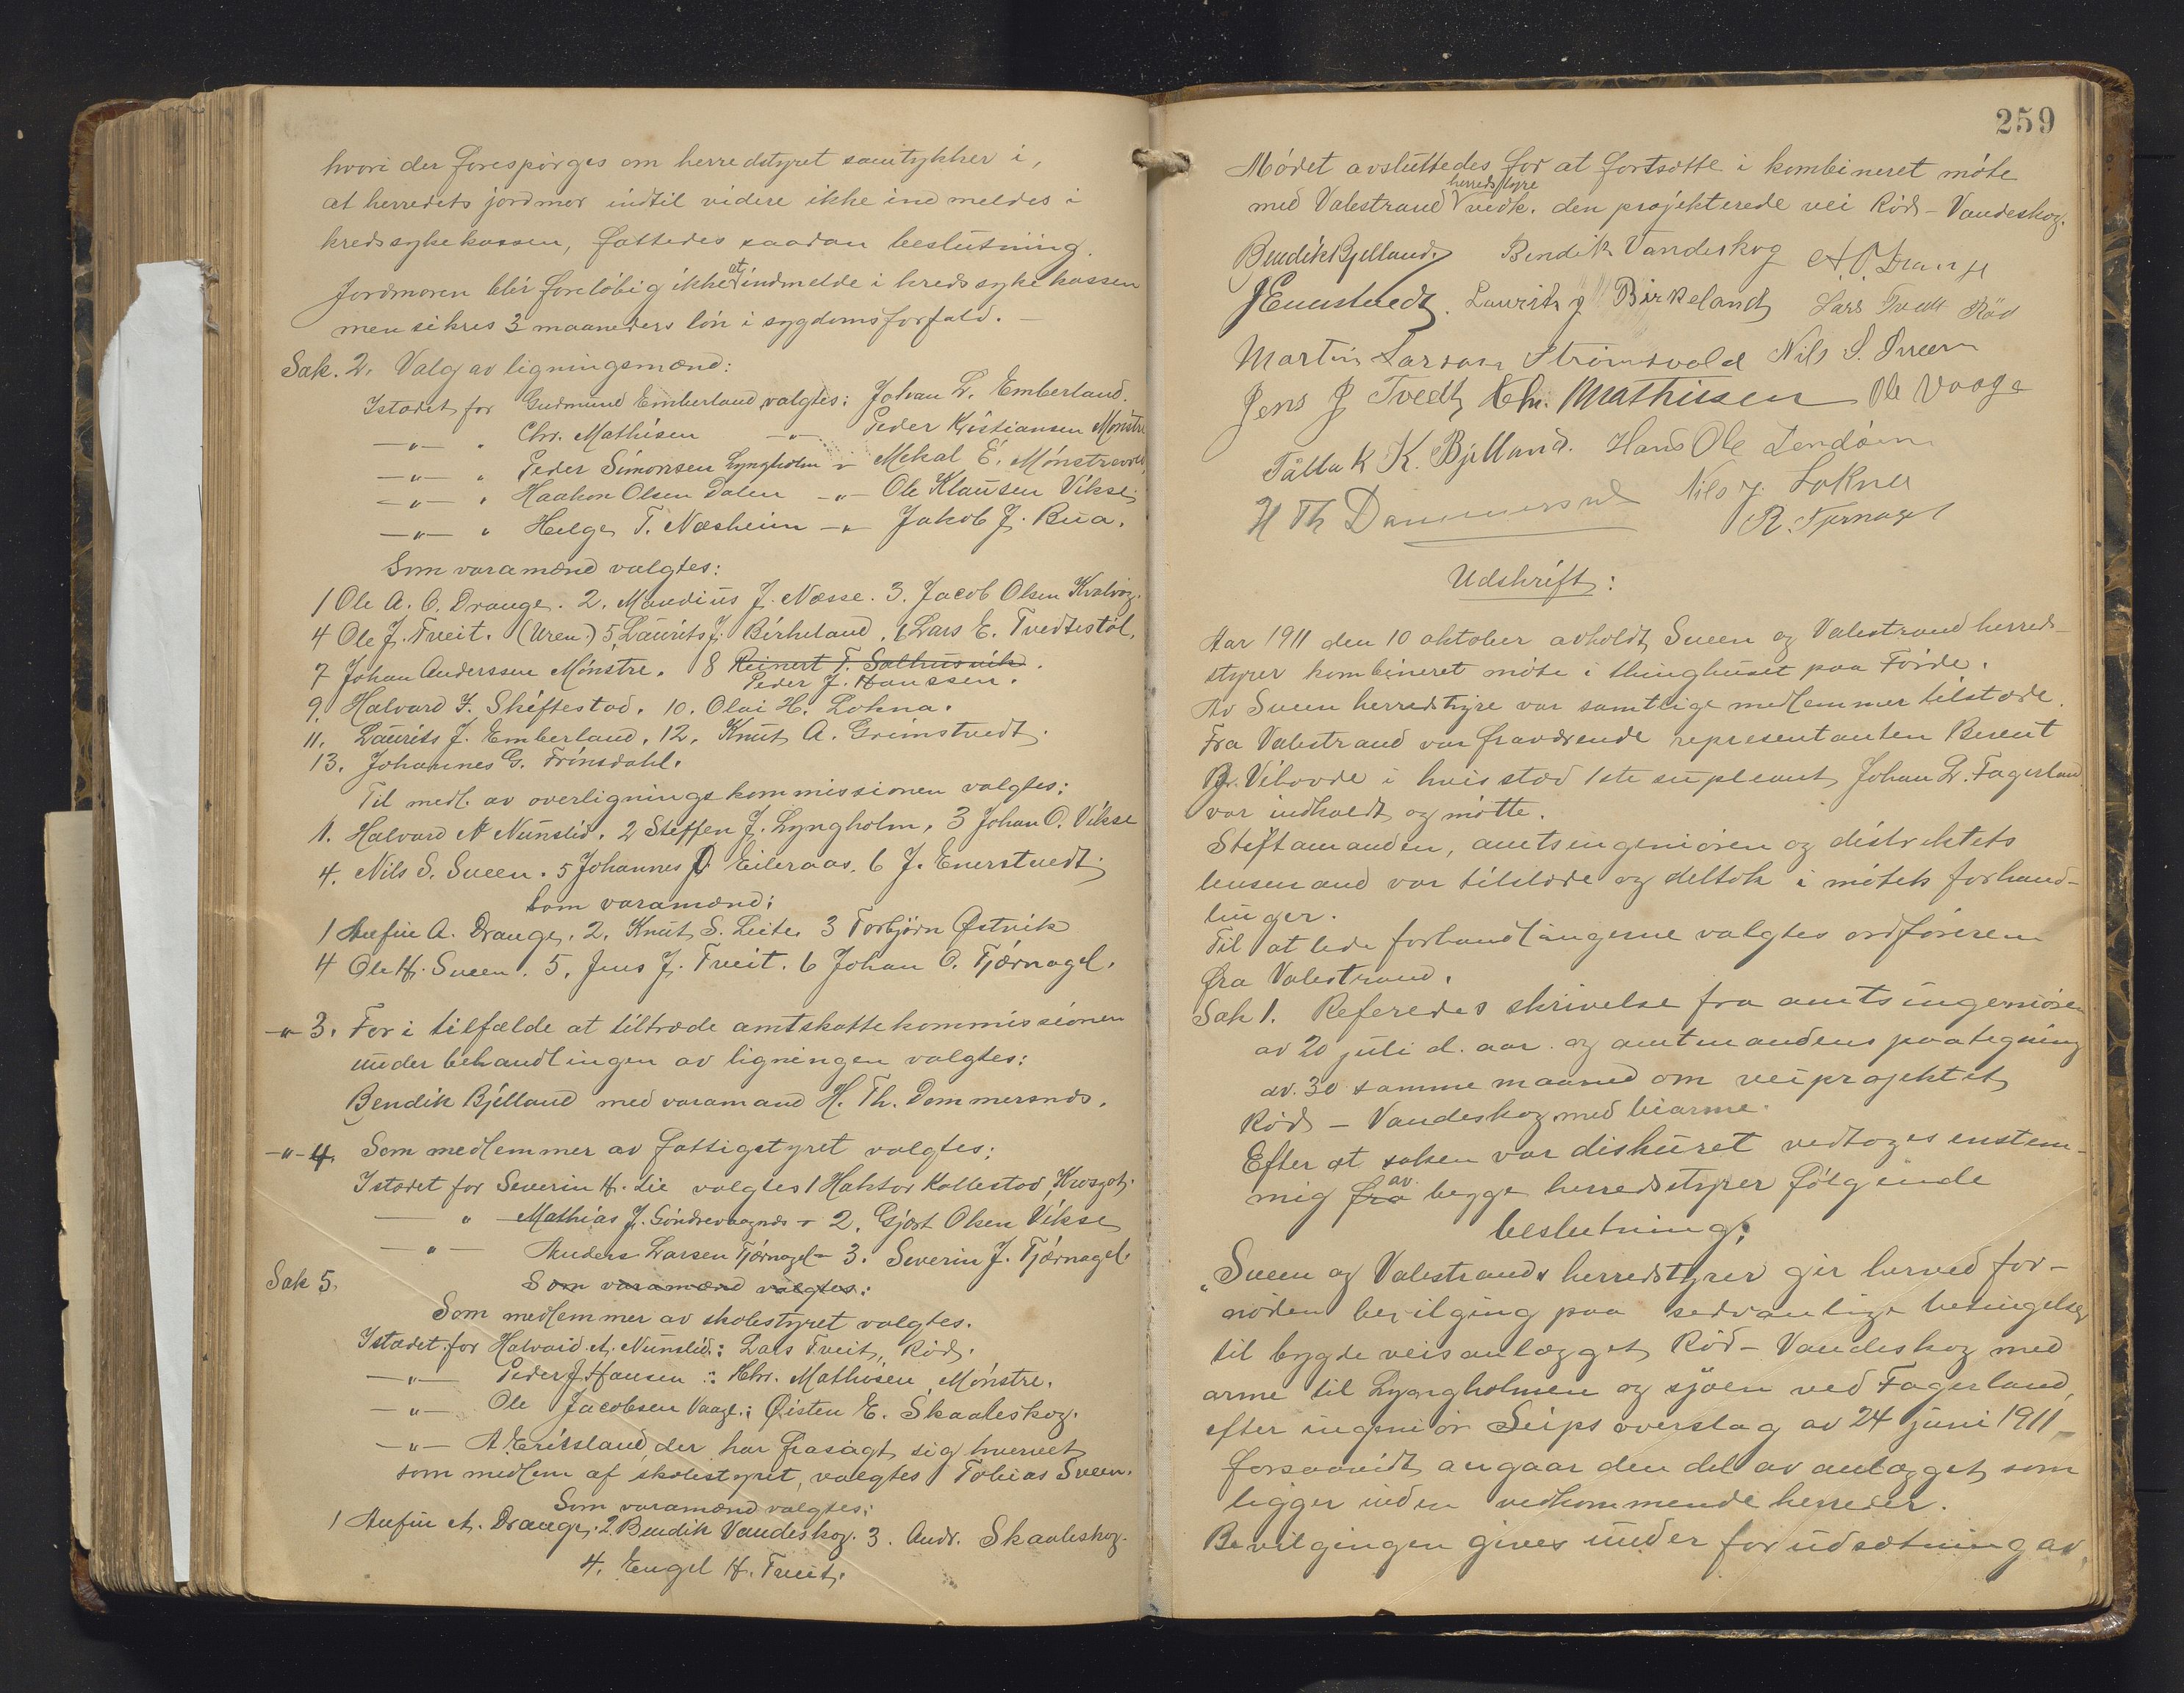 hvori der forespørges om herredstyret samtykker i,
at herredets jordmor indtil videre ikke indmeldes i
kredssykekassen, fattedes saadan beslutning.
Jordmoren blir foreløbig ikke at indmelde i kredssykekassen
men sikres 3 maaneders løn i sygdomsforfald. —
Sak. 2. Valg av ligningsmænd:
Istædet for Gudmund Emberland valgtes: Johan L. Emberland.
—"— " Chr. Mathisen —"— Peder Kristiansen Mønstre
—"— " Peder Simonsen Lyngholm —"— Mekal E. Mønstrevold,
—"— " Haakon Olsen Dalen —"— Ole Klausen Vikse,
—"— " Helge T. Næsheim —"— Jakob J. Bua.
Som varamænd valgtes:
1 Ole A. O. Drange. 2. Mandius J. Næsse. 3. Jacob Olsen Kvalvåg.
4 Ole J. Tveit. (Uren) 5 Laurits J. Birkeland. 6 Lars E. Tvedtestøl,
7 Johan Anderssen Mønstre. 8 Reinert T. Salhusvik.
Peder J. Hanssen.
9. Halvard J. Skiftestad. 10. Olai H. Lokna.
11. Laurits J. Emberland. 12. Knut A. Grimstvedt.
13. Johannes G. Frønsdahl.
Til medl. av overligningskommissionen valgtes:
1. Halvard A Nunslid. 2 Steffen J. Lyngholm. 3 Johan O. Vikse
4. Nils S. Sveen. 5 Johannes J. Eileraas. 6 J. Enerstvedt.
Som varamænd:
1 Anfin A. Drange. 2. Knut S. Leite. 3 Torbjørn Østvik
4 Ole H. Sveen. 5. Jens J. Tveit. 6 Johan O. Tjærnagel.
—"— 3. For i tilfælde at tiltræde amtskattekommissionen
under behandlingen av ligningen valgtes:
Bendik Bjelland med varamand H. Th. Dommersnes.
—"— 4. Som medlemmer av fattigstyret valgtes:
Istædet for Severin H. Lie valgtes 1 Haktor Kallestad, Krosgot.
— " — Mathias J. Søndrevaagnes — 2. Gjert Olsen Vikse
— " — Anders Larsen Tjærnagel — 3. Severin J. Tjærnagel.
Sak 5. Som varamænd valgtes:
Som medlemmer av skolestyret valgtes.
Istædet for Halvard A. Nunslid: Lars Tveit, Rød.
—"— Peder J. Hansen : Chr. Mathisen, Mønstre.
—"— Ole Jacobsen Vaage: Øisten E. Skaaleskog.
—"— A Eritsland, der har frasagt sig hvervet
som medlem af skolestyret, valgtes Tobias Sveen.
Som varamænd valgtes:
1 Anfin A. Drange. 2. Bendik Vandeskog. 3. Andr. Skaaleskog.
4. Engel H. Tveit.
259
Mødet avsluttedes for at fortsætte i kombineret møte
med Valestrand herredstyre vedk. den projekterede vei Rød — Vandeskog.
Bendik Bjelland. Bendik Vandeskog A. O. Drange
J Enerstvedt. Laurits J Birkeland Lars Tvedt Rød
Martin Larsen Strømsvold Nils S. Sveen
Jens J Tvedt Chr. Mathissen Ole Vaage
Tallak K. Bjelland. Hans Ole Lendøen
H Th Dommersnes Nils J. Lokna
R. Tjernagel
Udskrift:
Aar 1911 den 10 oktober avholdt Sveen og Valestrand herreds-
styrer kombineret møte i thinghuset paa Førde.
Av Sveen herredstyre var samtlige medlemmer tilstæde.
Fra Valestrand var fraværende representanten Berent
Br. Vihovde i hvis sted 1ste supleant Johan L. Fagerland
var indkaldt og møtte.
Stiftamanden, amtsingeniøren og distriktets
lensmand var tilstæde og deltok i møtets forhand-
linger.
Til at lede forhandlingerne valgtes ordføreren
fra Valestrand.
Sak 1. Referedes skrivelse fra amtsingeniøren
av 20 juli d. aar. og amtmandens paategning
av 30 samme maaned om veiprojektet
Rød — Vandeskog med biarme.
Efter at saken var diskuret vedtoges enstem-
mig fra av begge herredsstyrer følgende
beslutning:
„Sveen og Valestrands herredstyrer gir herved for-
nøden bevilging paa sedvanlige betingelser
til bygdeveisanlægget Rød — Vandeskog med
arme til Lyngholmen og sjøen ved Fagerland,
efter ingeniør Seips overslag av 24 juni 1911,
forsaavidt angaar den del av anlægget som
ligger inden vedkommende herreder.
Bevilgingen gives under forudsætning av,